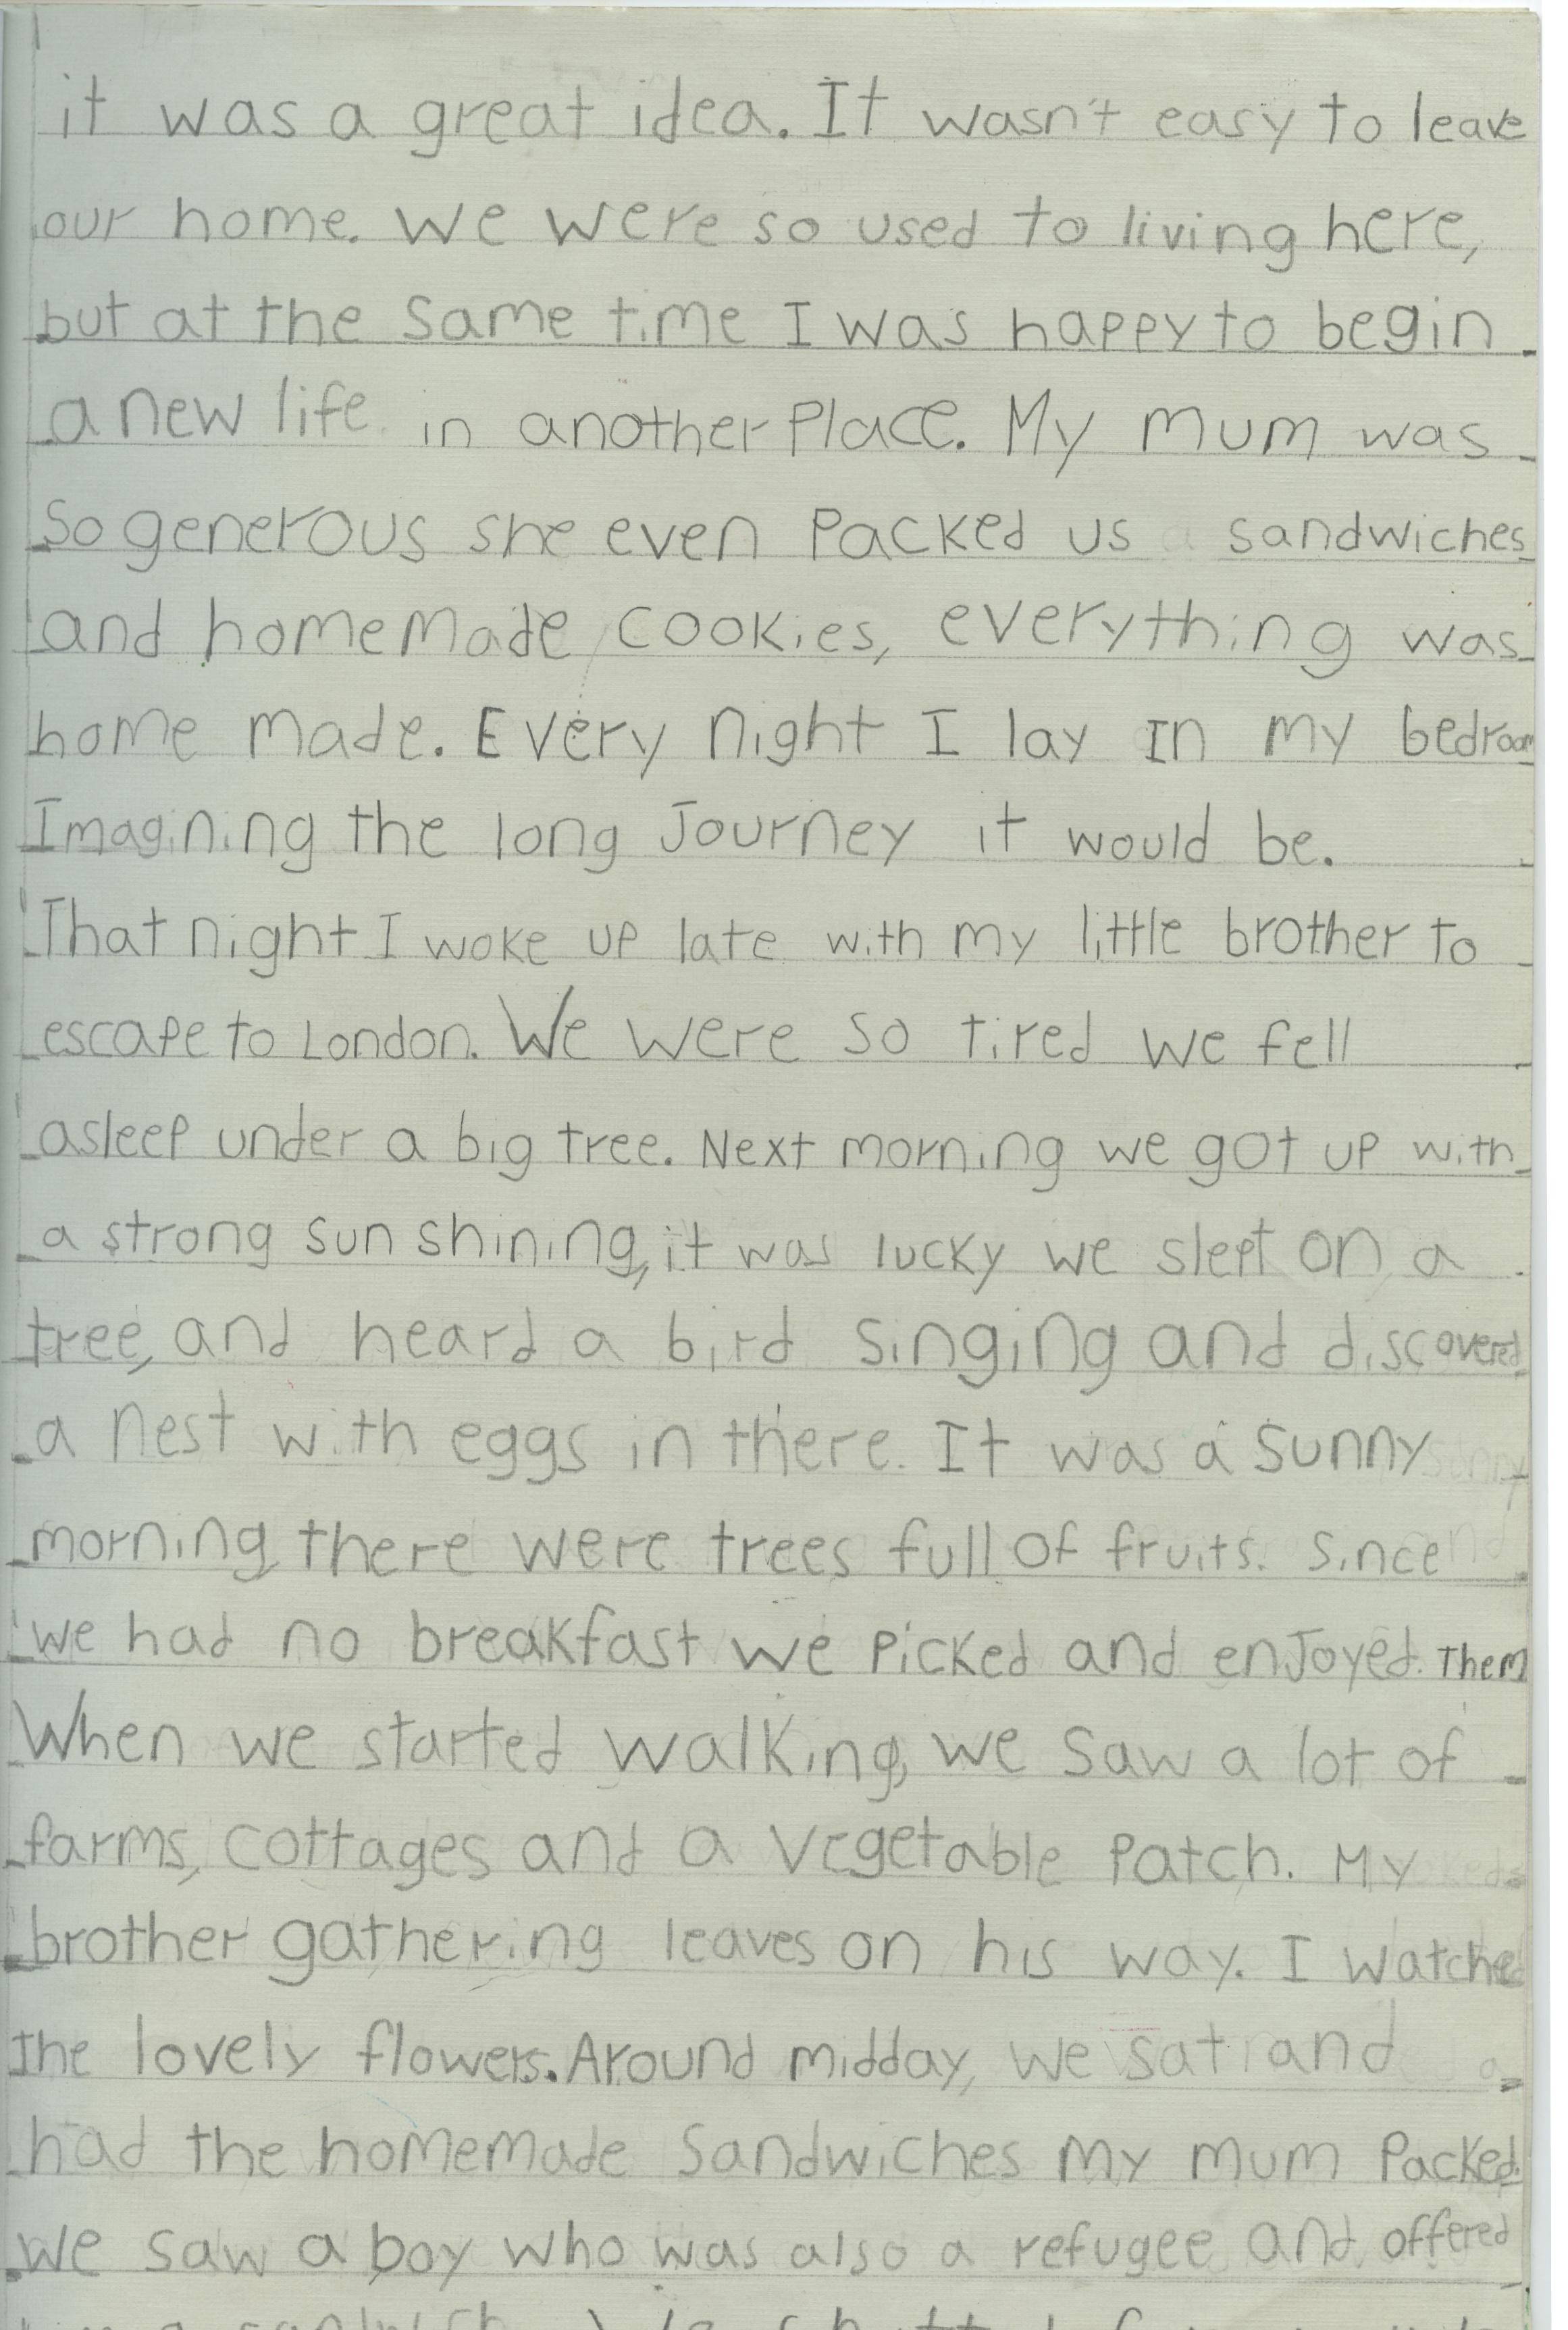 it was a great idea. It wasn't easy to leave
our home. We were so used to living here,
but at the same time I was happy to begin
a new life in another place. My mum was
so generous she even packed us sandwiches
and homemade cookies, everything was
home made. Every night I lay In my bedroom
Imagining the long Journey it would be.
That night I woke up late with my little brother to
escape to London. We were so tired we fell
asleep under a big tree. Next morning we got up with
a strong sun shining, it was lucky we slept on a
tree, and heard a bird singing and discovered
a nest with eggs in there. It was a sunny
morning, there were trees full of fruits. Since
we had no breakfast we picked and enjoyed. Them
When we started walking, we saw a lot of
farms, cottages and a vegetable patch. My
brother gathering leaves on his way. I watched
the lovely flowers. Around midday, we sat and
had the homemade sandwiches my mum packed.
we saw a boy who was also a refugee and offered